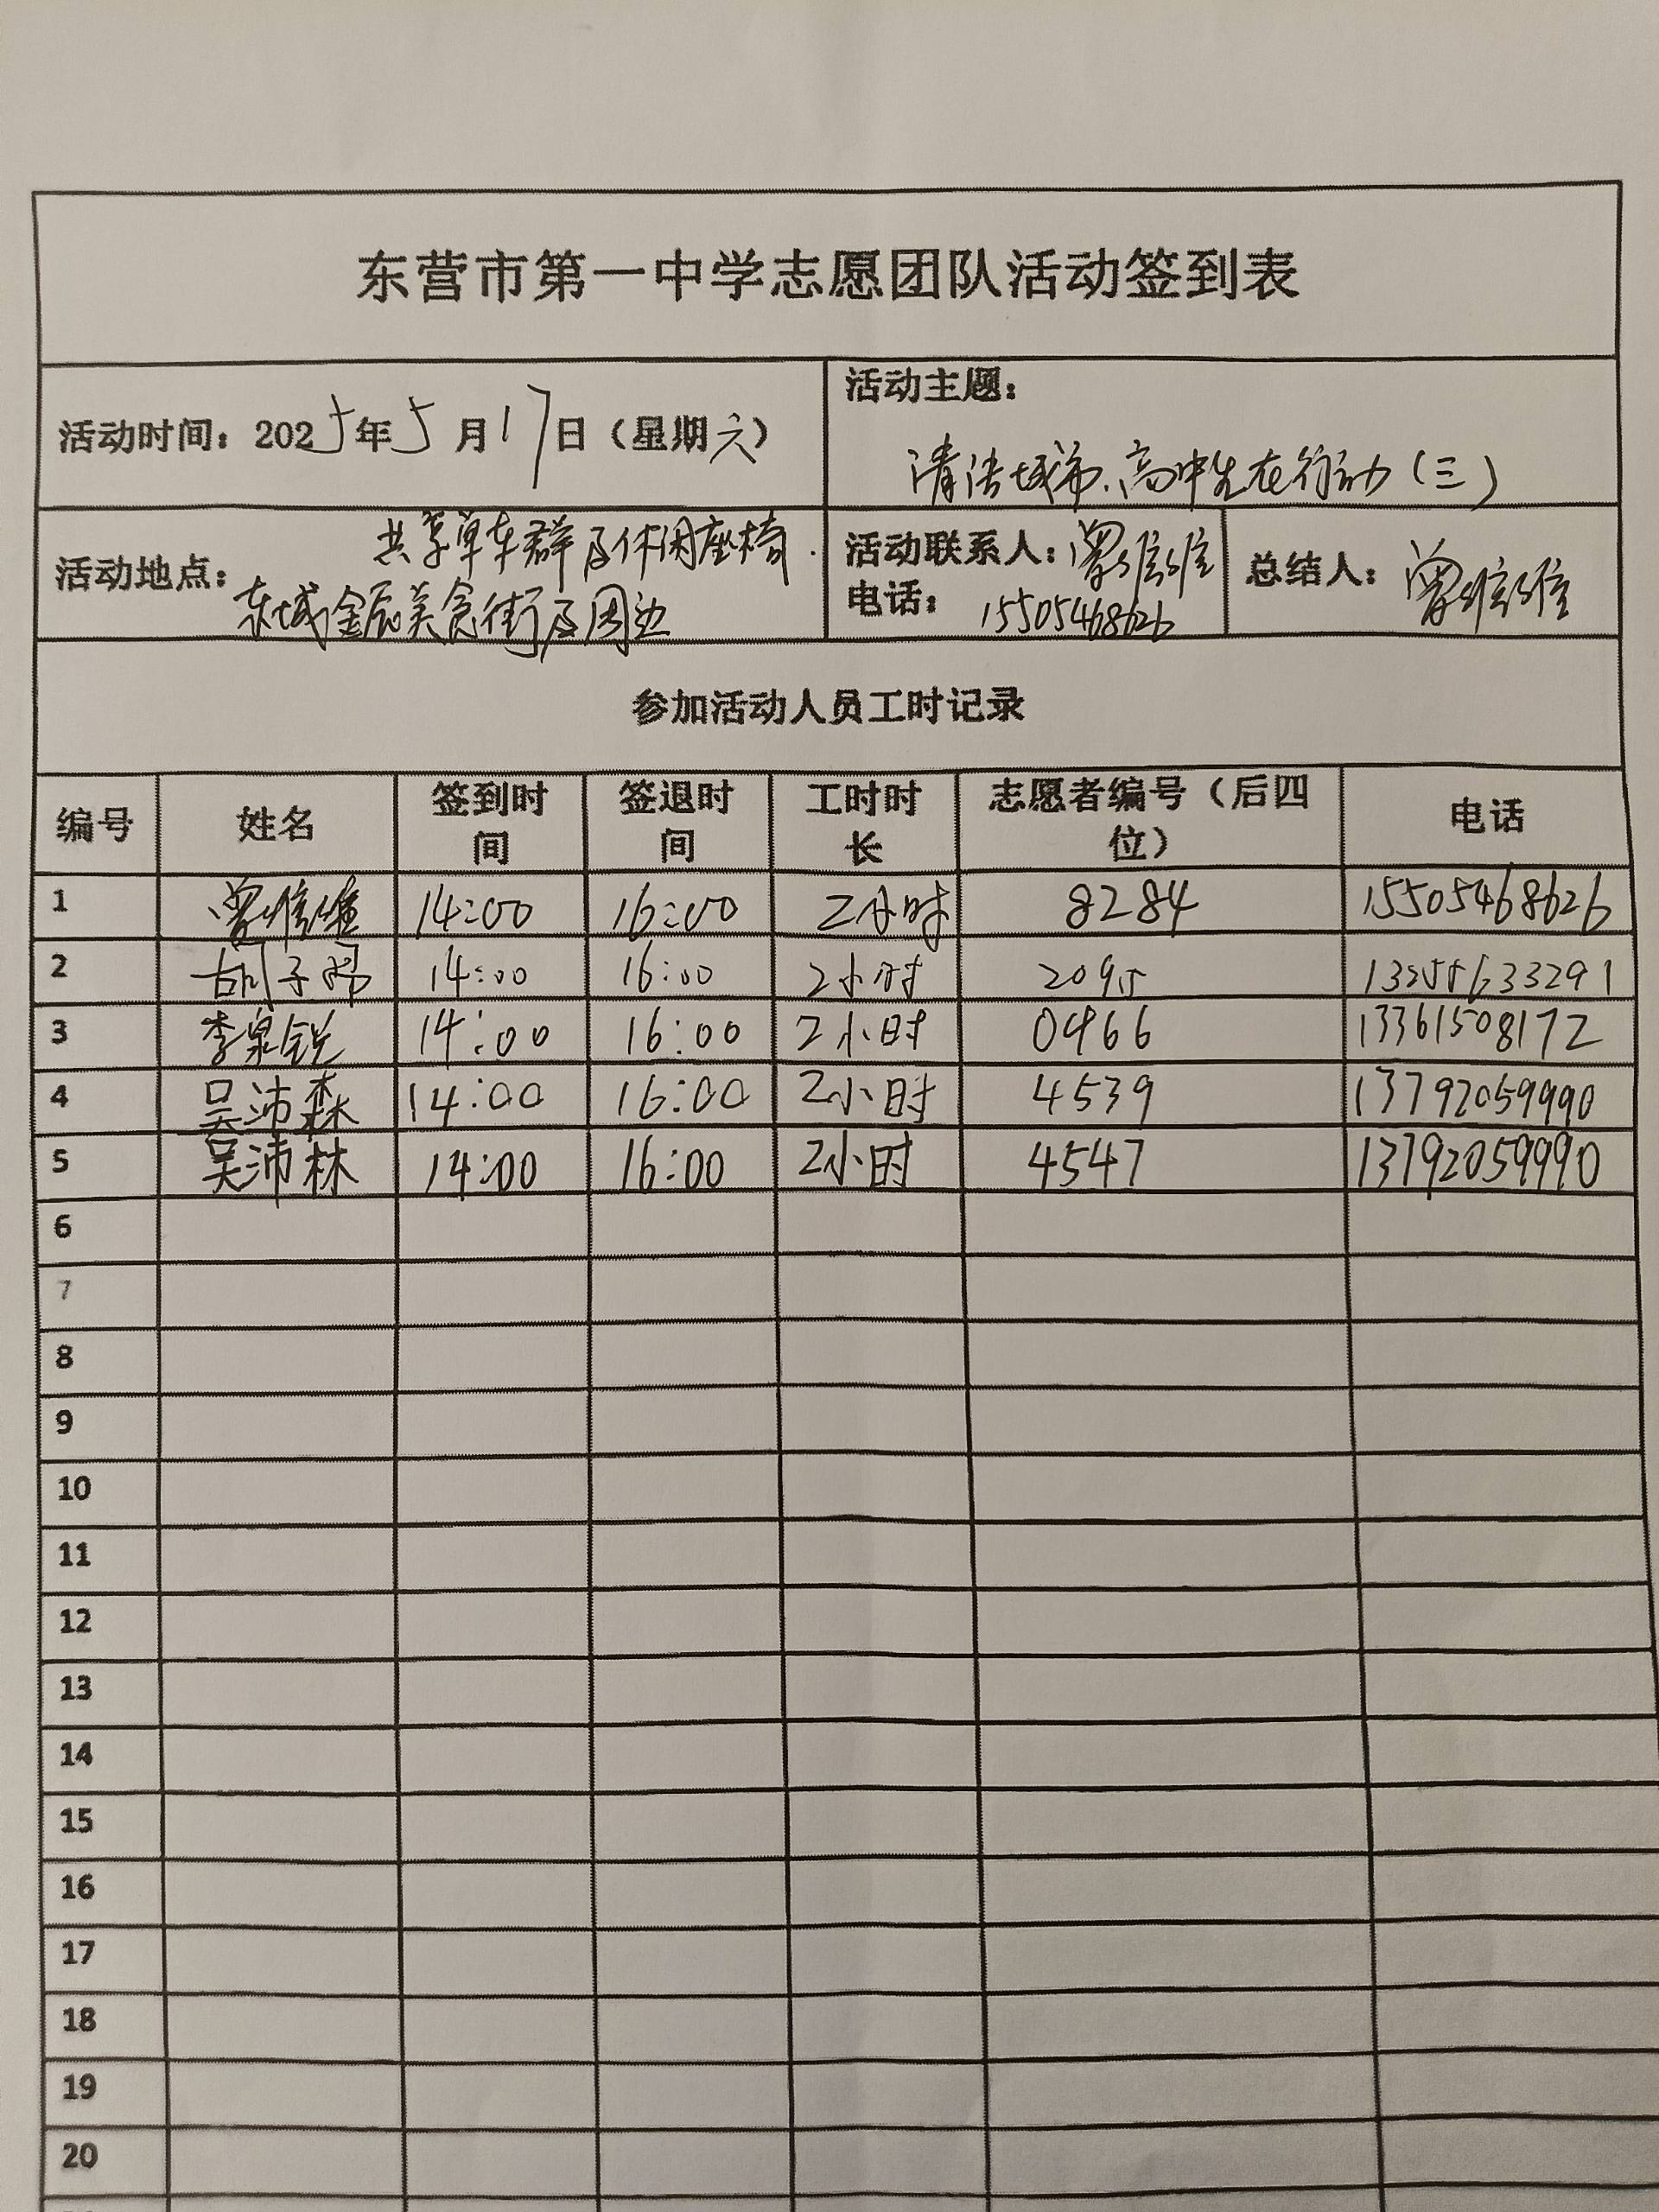 东营市第一中学志愿团队活动签到表
活动时间：2025年5月17日（星期六）
活动主题：
清洁城市、高中生在行动（三）
活动地点：
共享单车群及休闲座椅.
东城金辰美食街及周边
活动联系人：曾维维
电话：15505468626
总结人：曾维维
参加活动人员工时记录
编号 姓名 签到时间 签退时间 工时时长 志愿者编号（后四位） 电话
1 曾维维 14:00 16:00 2小时 8284 15505468626
2 胡子 14:00 16:00 2小时 2095 13255633291
3 李泉锐 14:00 16:00 2小时 0466 13361508172
4 吴沛森 14:00 16:00 2小时 4539 13792059990
5 吴沛林 14:00 16:00 2小时 4547 13792059990
6
7
8
9
10
11
12
13
14
15
16
17
18
19
20